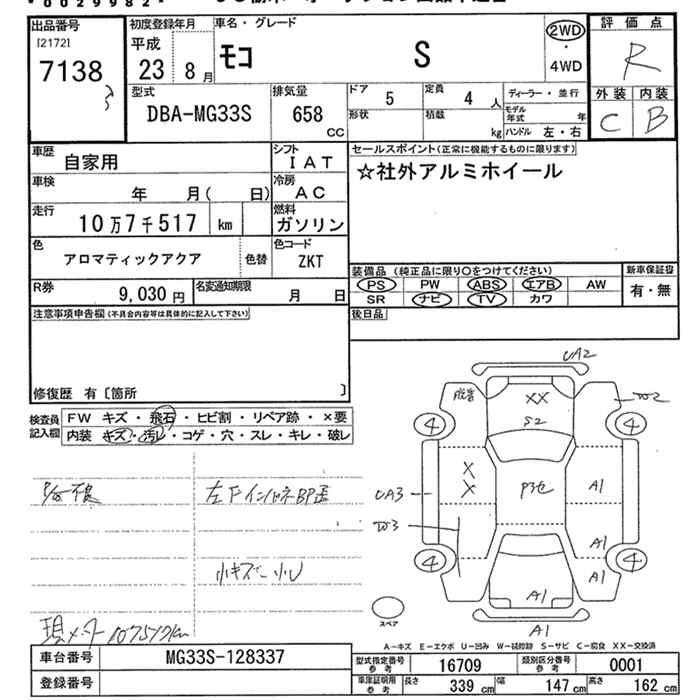 *0029982*
出品番号
[2172]
7138
初度登録年月
平成
23 8月
車名・グレード
モコ S
2WD
・
4WD
評価点
R
外装 内装
C B
型式
DBA-MG33S
排気量
658
CC
ドア
5
定員
4 人
形状
積載
kg
ディーラー・並行
モデル年式 年
ハンドル 左・右
車歴
自家用
シフト
IAT
車検
年 月( 日)
冷房
AC
走行
10万7千517 km
燃料
ガソリン
色
アロマティックアクア
色替
色コード
ZKT
R券
9,030 円
名変通知期限
月 日
セールスポイント(正常に機能するものに限ります)
☆社外アルミホイール
装備品 (純正品に限り○をつけてください)
PS PW ABS エアB AW
SR ナビ TV カワ
新車保証書
有・無
後日品
注意事項申告欄(不具合内容等は具体的に記入して下さい)
修復歴 有〔箇所 〕
検査員記入欄
FW キズ・飛石・ヒビ割・リペア跡・×要
内装 キズ・汚レ・コゲ・穴・スレ・キレ・破レ
小キズ 小U
107517km
UA2
XX
S2
W2
4 4
X
X
UA3
W3
A1
A1
A1
A1
4 4
A1
スペア
A-キズ E-エクボ U-凹み W-補修跡 S-サビ C-腐食 XX-交換済
車台番号
MG33S-128337
登録番号
型式指定番号 参考
16709
類別区分番号 参考
0001
車庫証明用 参考
長さ 339 cm
幅 147 cm
高さ 162 cm